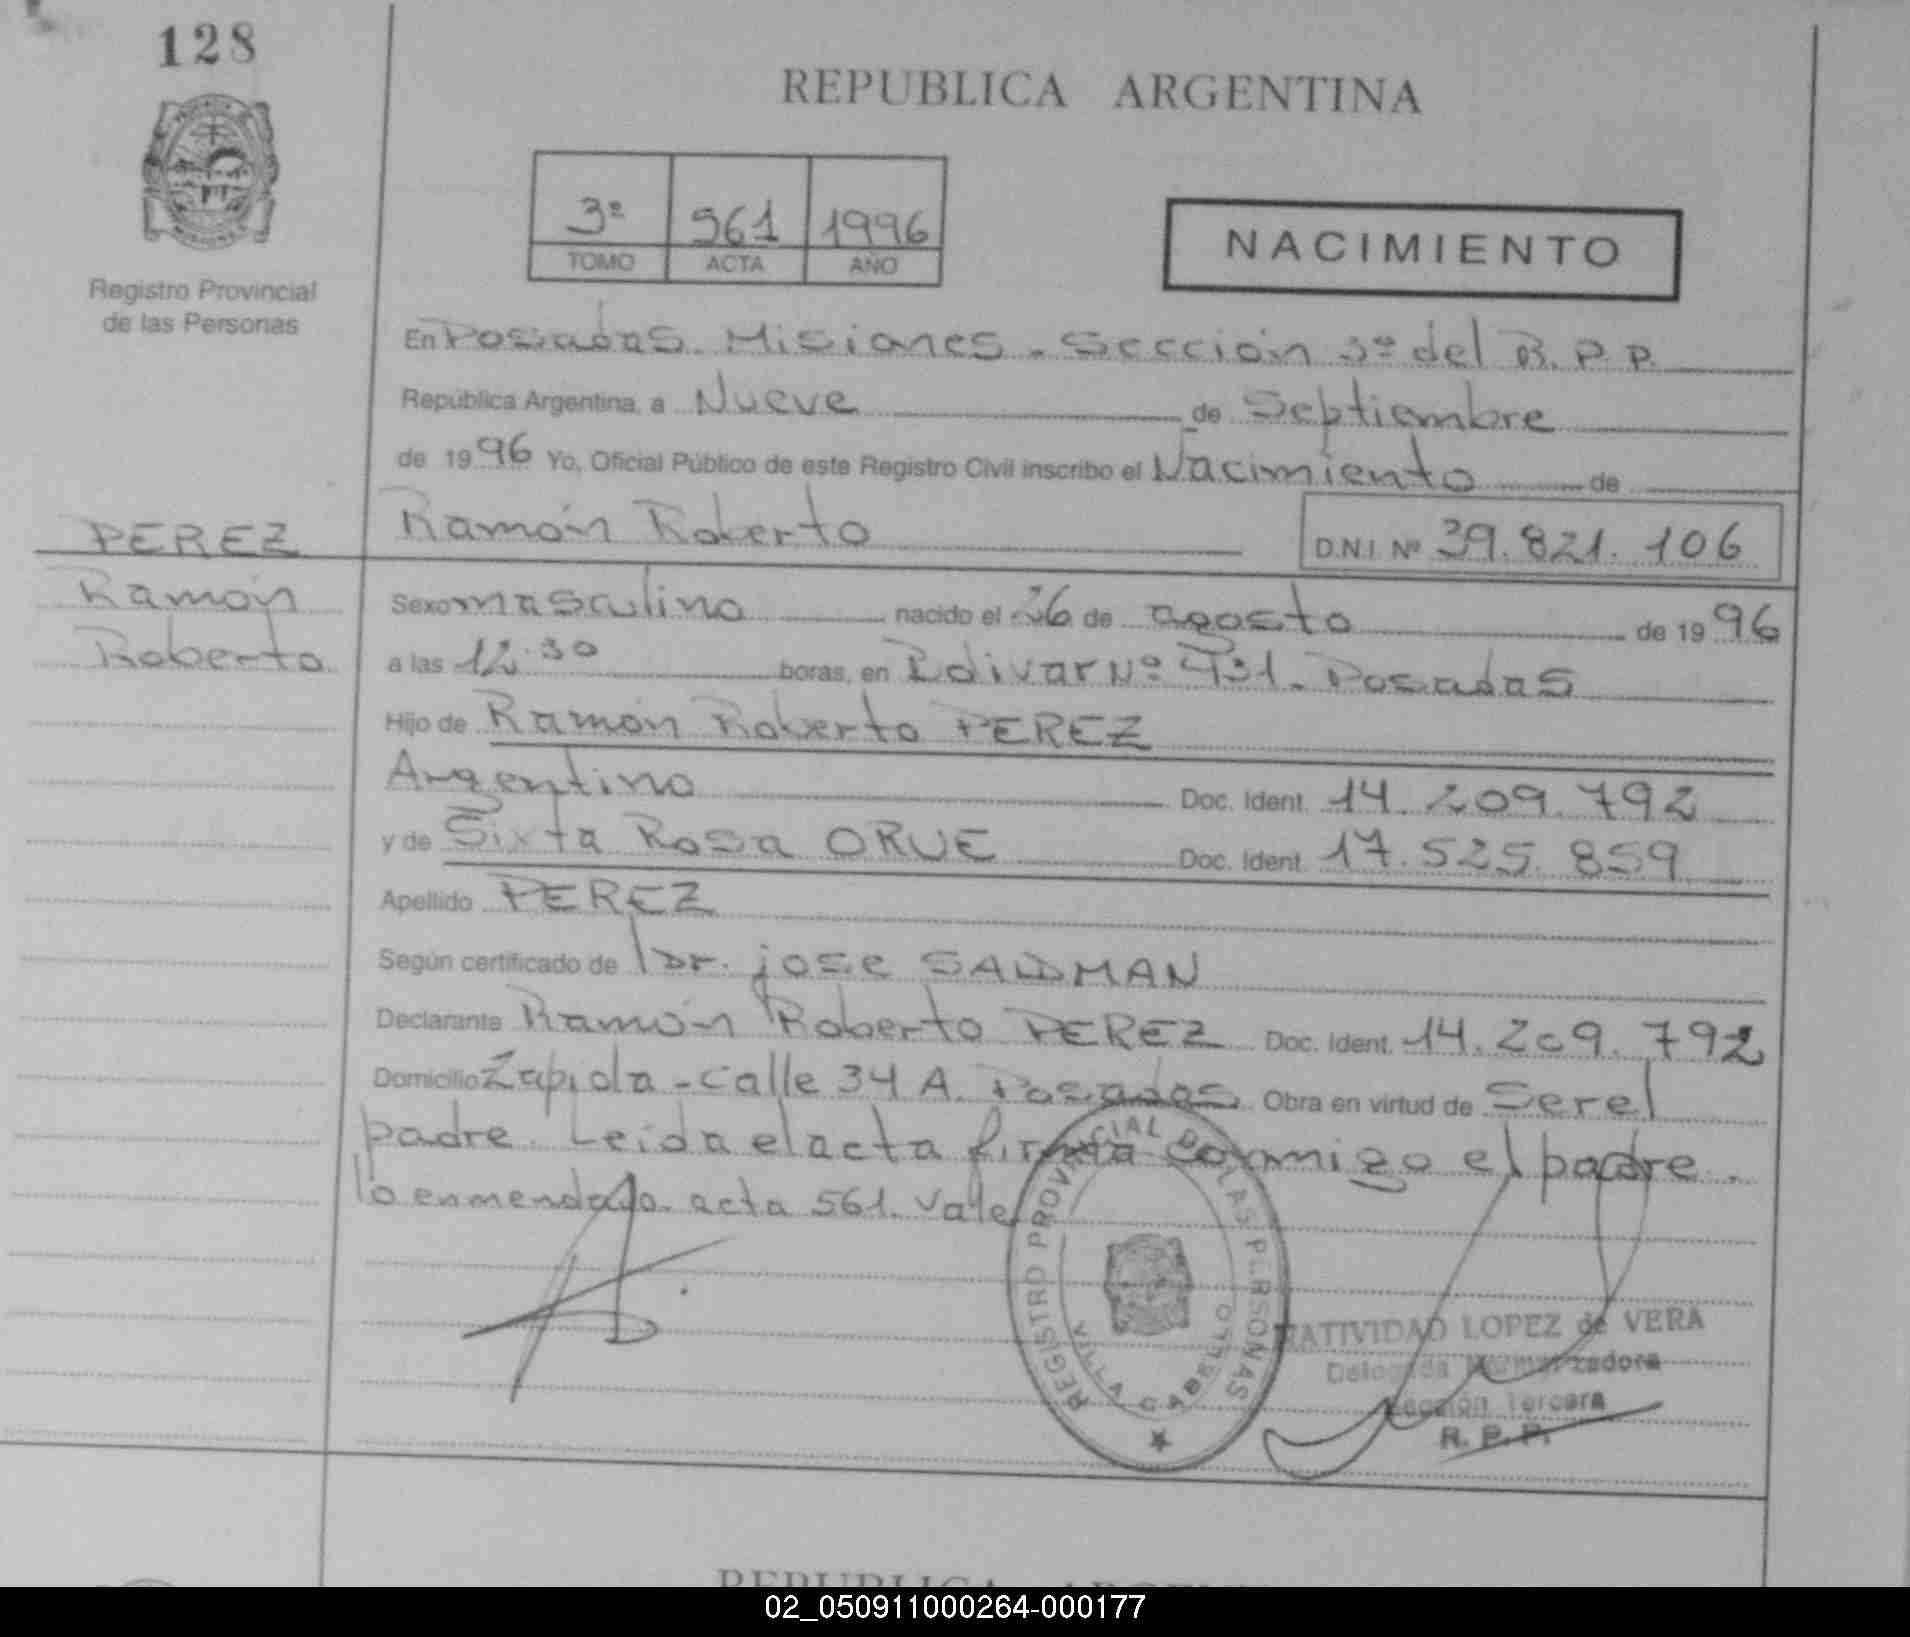 128
REPUBLICA ARGENTINA
3º 561 1996
TOMO ACTA AÑO
NACIMIENTO
Registro Provincial
de las Personas
En Posadas. Misiones. Sección 3º del R. P. P.
República Argentina, a Nueve de Septiembre
de 1996 Yo, Oficial Público de este Registro Civil inscribo el Nacimiento de
PEREZ Ramón Roberto D.N.I. Nº 39.821.106
Ramón
Roberto
Sexo masculino nacido el 26 de agosto de 1996
a las 12.30 horas, en Bolivar Nº 431. Posadas
Hijo de Ramón Roberto PEREZ
Argentino Doc. Ident. 14.209.792
y de Sixta Rosa ORUE Doc. Ident. 17.525.859
Apellido PEREZ
Según certificado de Dr. jose
Declarante Ramón Roberto PEREZ Doc. Ident. 14.209.792
Domicilio Zapiola - calle 34 A. Posadas Obra en virtud de Ser el
padre. Leida el acta firma conmigo el padre.
lo enmendado. acta 561. Vale
REGISTRO PROVINCIAL DE LAS PERSONAS
VILLA CABELLO
NATIVIDAD LOPEZ de VERA
Delegada
Sección Tercera
R. P. P.
REPUBLICA
02_050911000264-000177